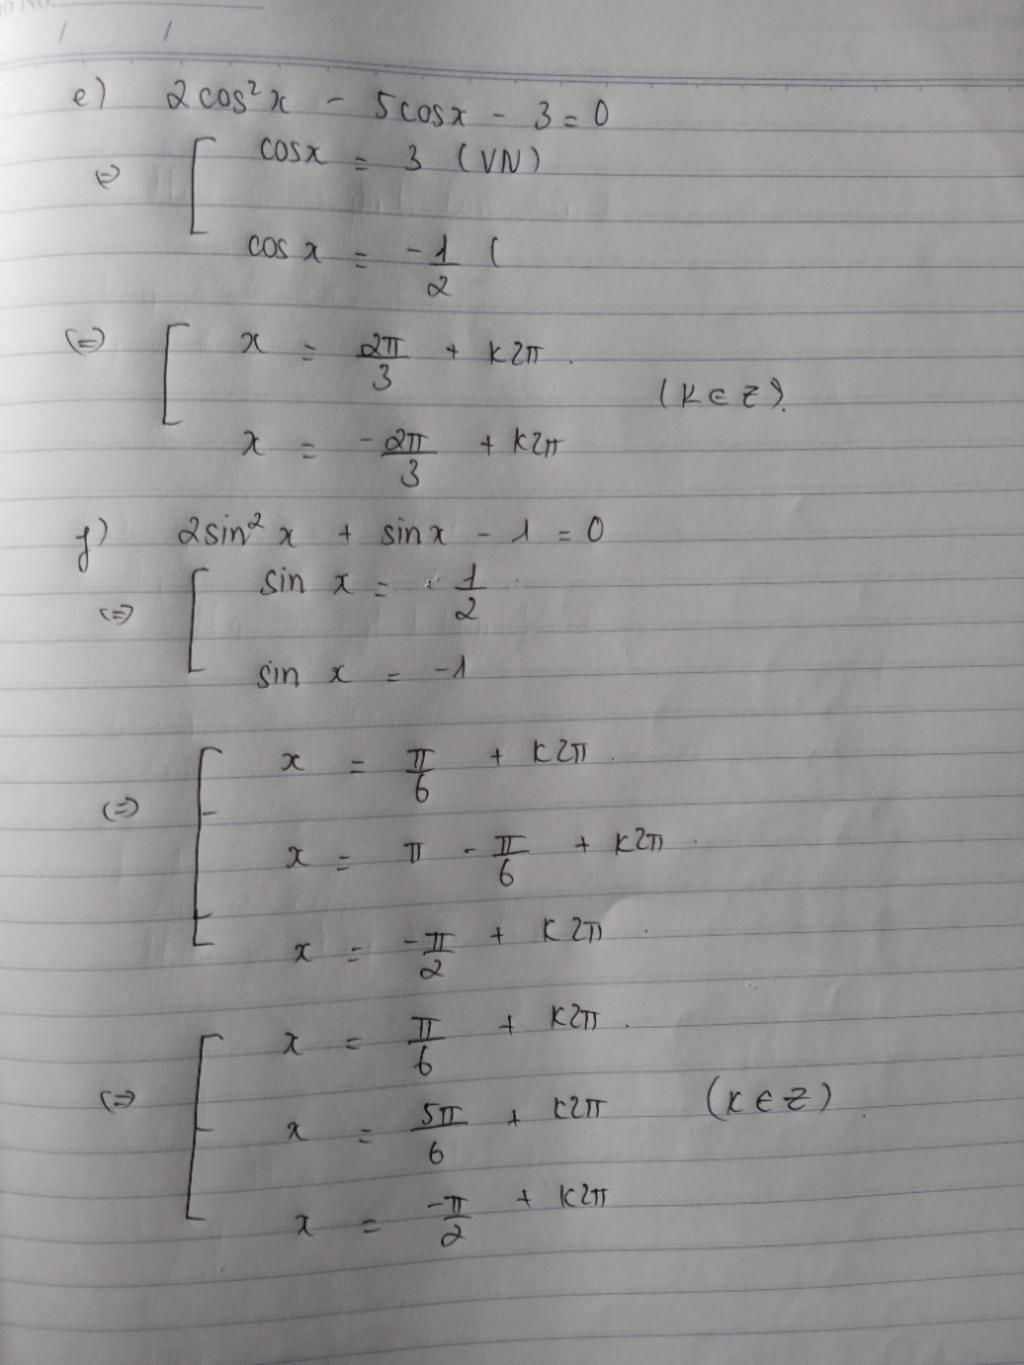 e) 2cos²x - 5cosx - 3 = 0
⇔ [ cosx = 3 (VN)
cosx = -1/2 (
⇔ [ x = 2π/3 + k2π.
(k ∈ Z).
x = -2π/3 + k2π
f) 2sin²x + sinx - 1 = 0
⇔ [ sin x = 1/2
sin x = -1
⇔ [ x = π/6 + k2π.
x = π - π/6 + k2π.
x = -π/2 + k2π.
⇔ [ x = π/6 + k2π.
x = 5π/6 + k2π (k ∈ Z).
x = -π/2 + k2π